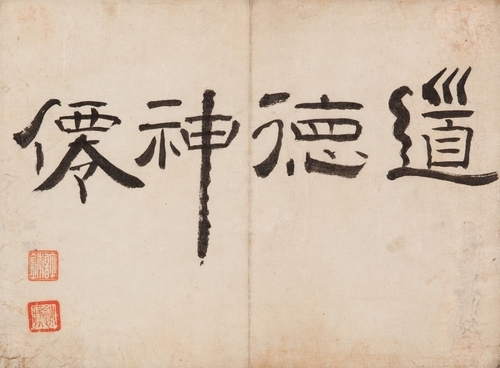 道德神僊